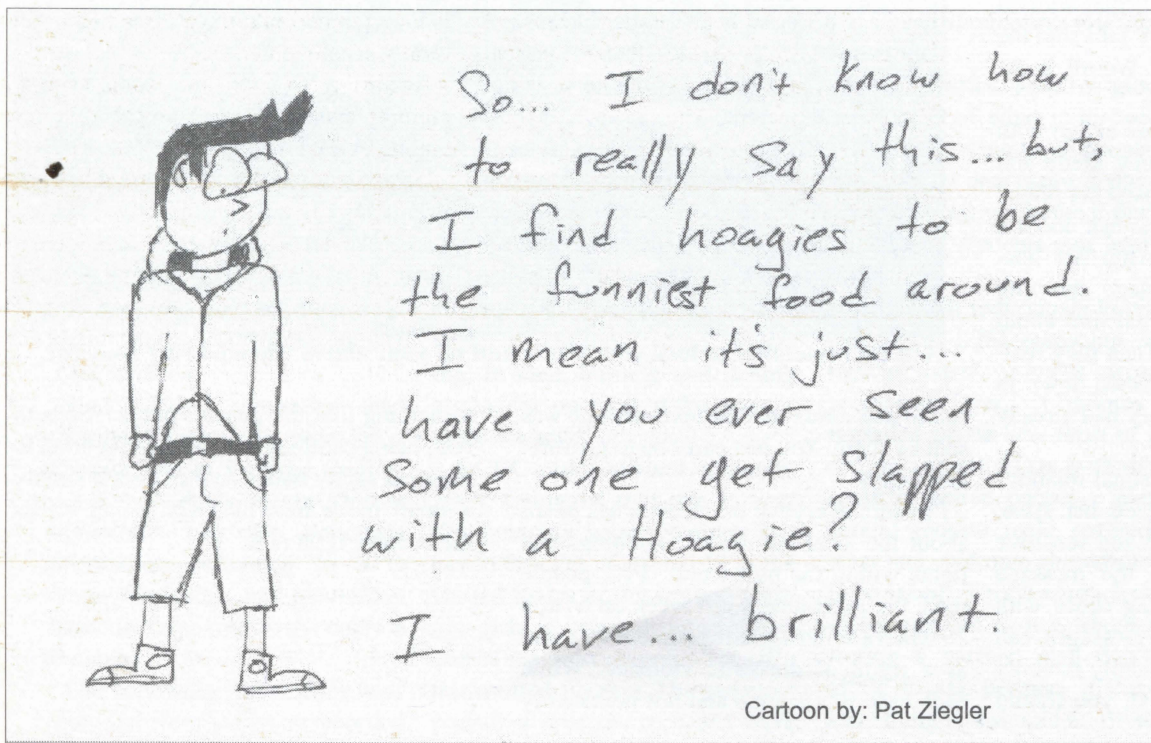 So... I don't know how
to really say this... but,
I find hoagies to be
the funniest food around.
I mean it's just...
have you ever seen
some one get slapped
with a Hoagie?
I have... brilliant.
Cartoon by: Pat Ziegler